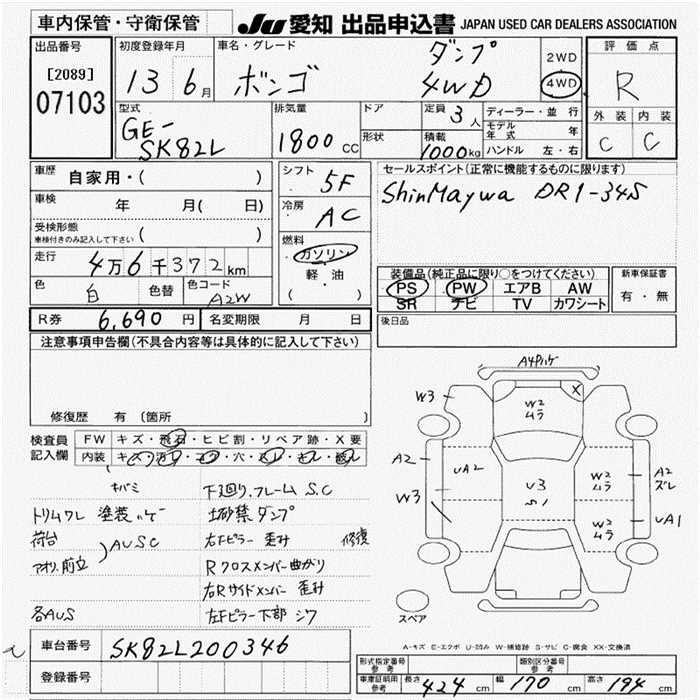 車内保管・守衛保管
JU 愛知 出品申込書 JAPAN USED CAR DEALERS ASSOCIATION
出品番号 [2089] 07103
初度登録年月 13 6月
車名・グレード ボンゴ ダンプ 4WD
2WD 4WD
評価点 R
外装 C 内装 C
型式 GE-SK82L
排気量 1800 CC
ドア
形状
定員 3人
積載 1000kg
ディーラー・並行
モデル年式 年
ハンドル 左・右
車歴 自家用・( )
車検 年 月( 日)
受検形態
車検付きのみ記入して下さい ( )
走行 4万6千372km
色 白 色替 色コード A2W
シフト 5F
冷房 AC
燃料 ガソリン 軽・油 ( )
セールスポイント(正常に機能するものに限ります)
ShinMaywa DR1-34S
装備品(純正品に限り○をつけてください)
PS PW エアB AW
SR ナビ TV カワシート
新車保証書 有・無
R券 6,690円 名変期限 月 日
後日品
注意事項申告欄(不具合内容等は具体的に記入して下さい)
修復歴 有(箇所
検査員記入欄
FW キズ・飛石・ヒビ割・リペア跡・X要
内装 キズ・汚レ・コゲ・穴・スレ・キレ・破レ
キバミ 下廻り,フレームS.C
トリムワレ 塗装ハゲ 土砂禁ダンプ
荷台 AUSC 右Fピラー歪み 修復
アオリ,前立 Rクロスメンバー曲がり
右Rサイドメンバー歪み
各AUS 左Fピラー下部シワ
A4Pハゲ
W3
X
W2 ムラ
A2
UA2
U3
W2 ムラ
A2 ズレ
W3
W2 ムラ
UA1
スペア
A-キズ E-エクボ U-凹み W-補修跡 S-サビ C-腐食 XX-交換済
車台番号 SK82L200346
登録番号
形式指定番号 参考
類別区分番号 参考
車庫証明用 参考 長さ 424 cm 幅 170 cm 高さ 194 cm